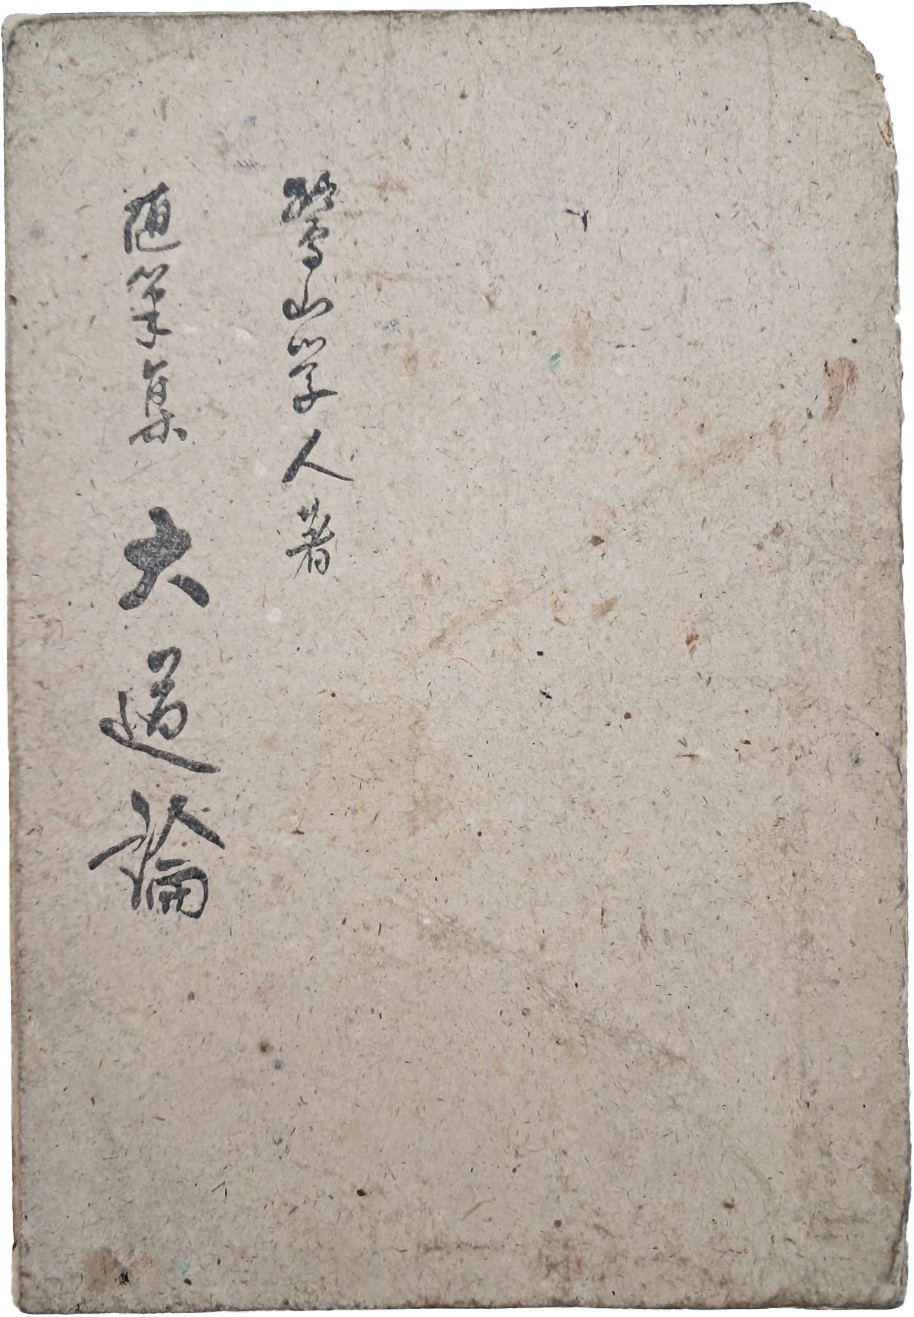 鷲山学人著
随筆集 大道論